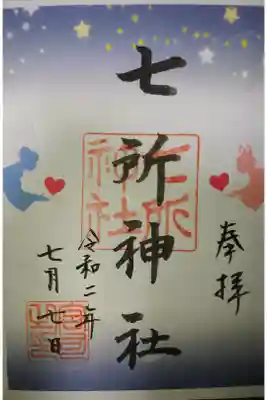 奉拝
七所神社
七所神社
令和二年
七月七日